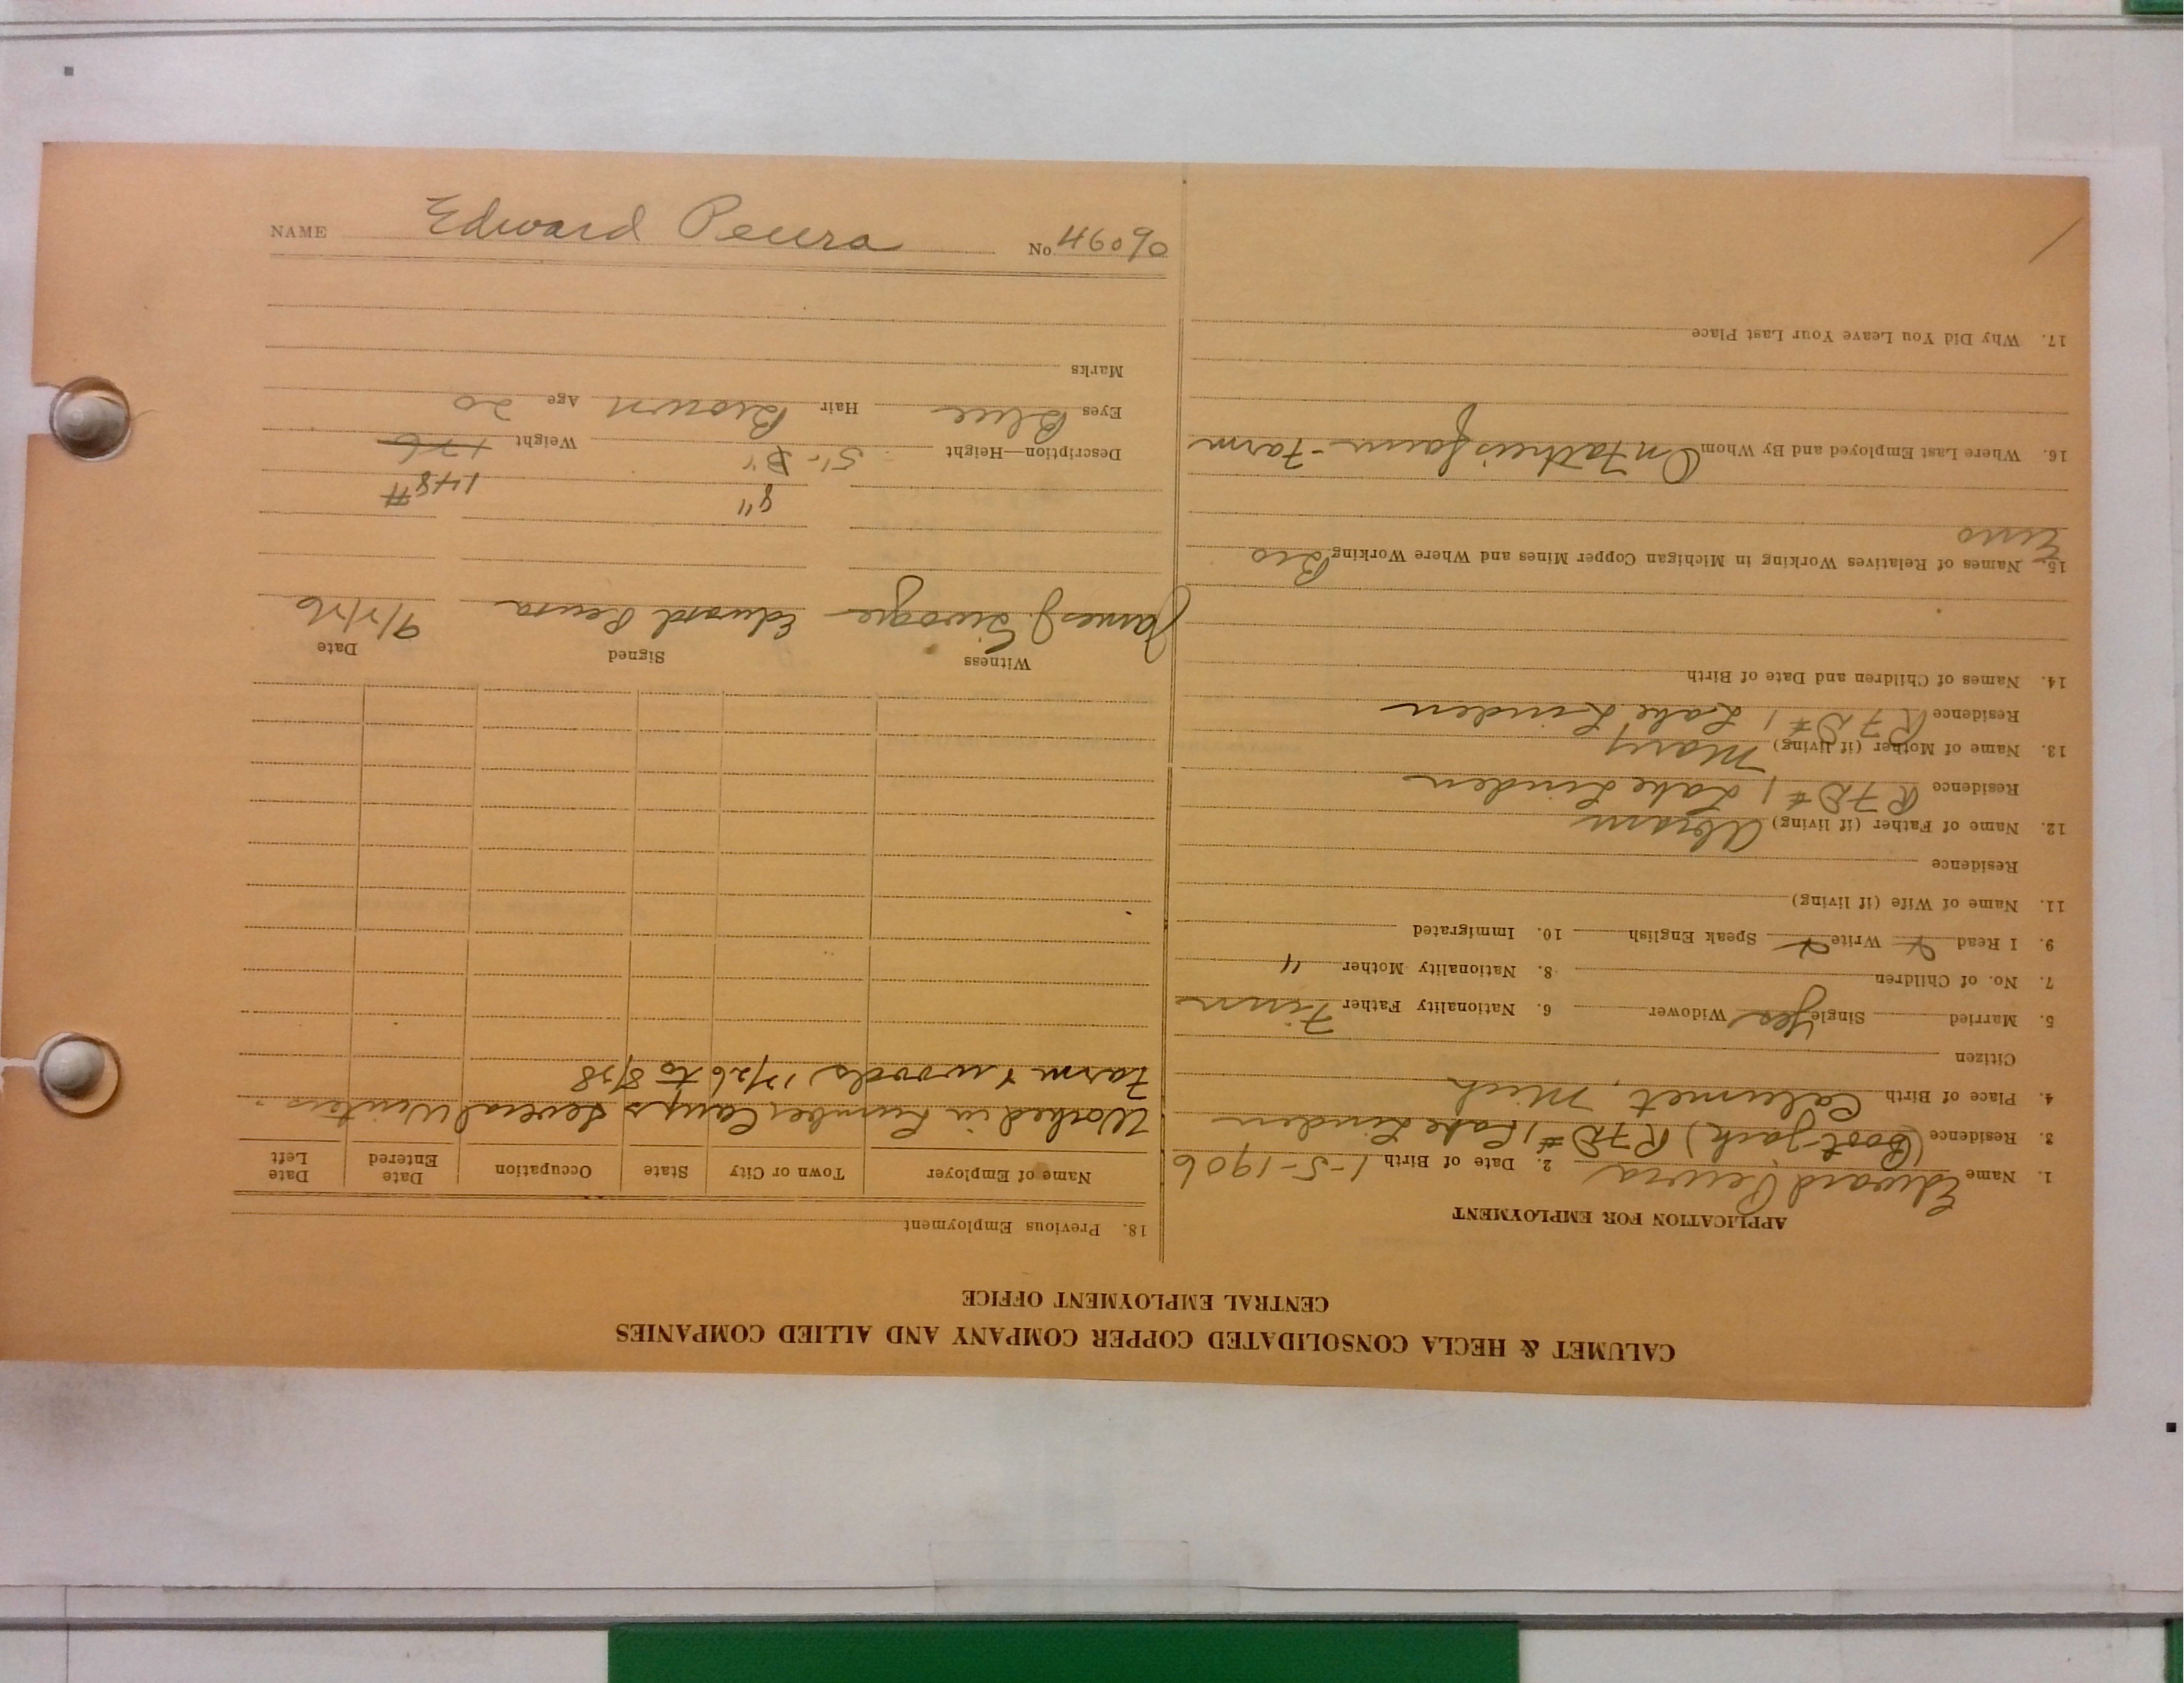 NAME Edward Peura No. 46090
CALUMET & HECLA CONSOLIDATED COPPER COMPANY AND ALLIED COMPANIES
CENTRAL EMPLOYMENT OFFICE
APPLICATION FOR EMPLOYMENT
1. Name Edward Peura 2. Date of Birth 1-5-1906
3. Residence (Boot-Jack) RFD #1 Lake Linden
4. Place of Birth Calumet, Mich
Citizen
5. Married Single Yes Widower 6. Nationality Father Finn
7. No. of Children 8. Nationality Mother "
9. I Read Write Speak English 10. Immigrated
11. Name of Wife (if living)
Residence
12. Name of Father (if living) Abram
Residence RFD #1 Lake Linden
13. Name of Mother (if living) Mary
Residence RFD #1 Lake Linden
14. Names of Children and Date of Birth
15. Names of Relatives Working in Michigan Copper Mines and Where Working Bro
Eino
16. Where Last Employed and By Whom On Fathers Farm
17. Why Did You Leave Your Last Place
18. Previous Employment
Name of Employer Town or City State Occupation Date Entered Date Left
Worked in Lumber Camps several Winters.
Farm & woods, 12/26 to 8/28
Witness Signed Date
James J. Edward Peura 9/7/26
9" 148#
Description—Height 5'- Weight 176
Eyes Blue Hair Brown Age 20
Marks